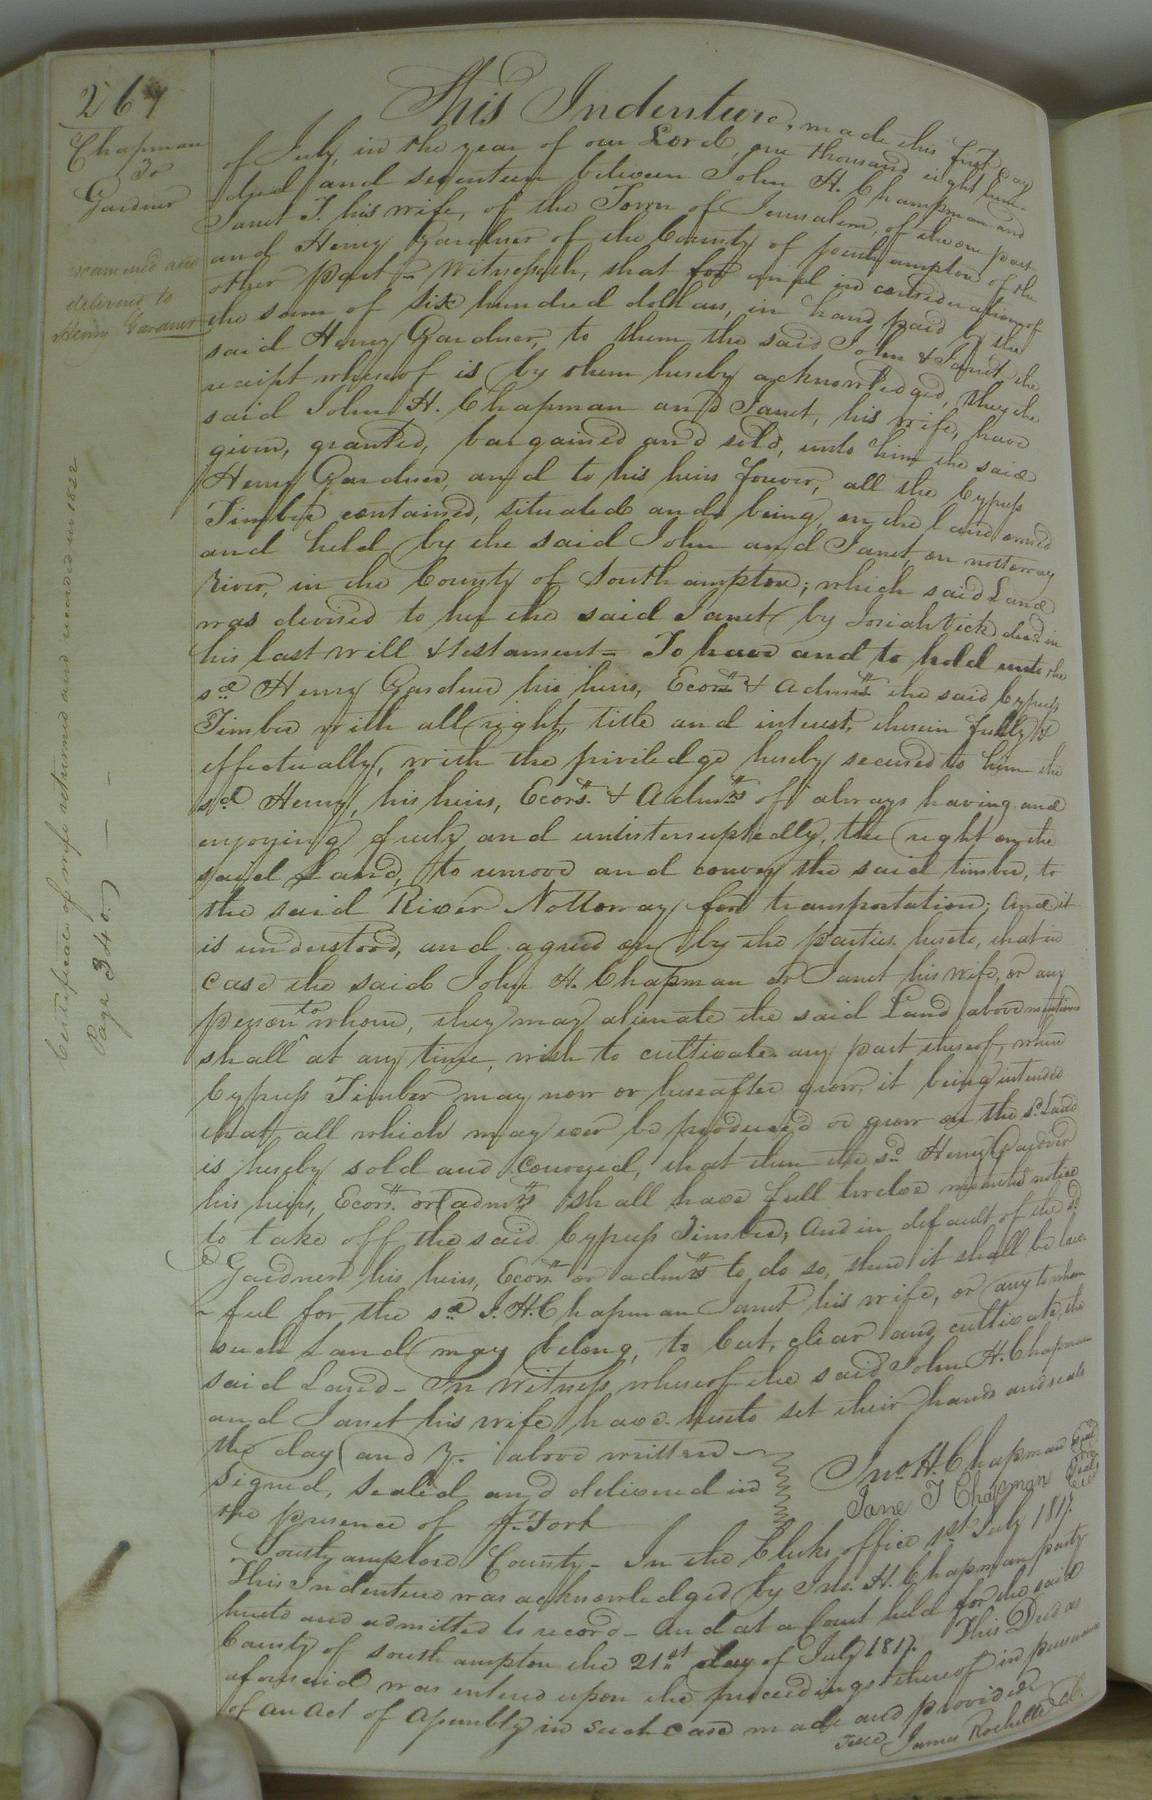 267
Chapman
To
Gardner
examined and
delivered to
Henry Gardner
Certificate of wife returned and recorded in 1822
Page 340.
This Indenture, made this first day
of July, in the year of our Lord, one thousand eight hun-
dred and seventeen between John H. Chapman and
Janet T. his wife, of the Town of Jerusalem, of the one part
and Henry Gardner of the County of Southampton of the
other part - Witnesseth, that for and in consideration of
the sum of six hundred dollars, in hand paid by the
said Henry Gardner, to them the said John & Janet, the
receipt whereof is by them hereby acknowledged, they the
said John H. Chapman and Janet, his wife, have
given, granted, bargained and sold, unto him the said
Henry Gardner, and to his heirs forever, all the Cypress
Timber contained, situated and being, on the land owned
and held by the said John and Janet, on nottoway
River, in the County of Southampton; which said Land
was devised to her the said Janet by Josiah Vick decd in
his last will & testament - To have and to hold unto the
sd Henry Gardner his heirs, Ecors & admrs the said Cypress
Timber with all right, title and interest, therein fully &
effectually, with the priviledge hereby secured to him the
sd Henry, his heirs, Ecors. & Admrs of always having and
enjoying freely and uninterruptedly, the right on the
said Land, to remove and convey the said timber, to
the said River Nottoway for transportation; And it
is understood, and agreed on by the parties hereto, that in
case the said John H. Chapman or Janet his wife, or any
person to whom, they may alienate the said Land above mentioned
shall at any time, wish to cultivate any part thereof, where
Cypress Timber may now or hereafter grow, it being intended
that all which may ever be produced or grow on the sd Land
is hereby sold and conveyed, that then the sd Henry Gardner
his heirs, Ecors. or admrs shall have full twelve months notice
to take off the said Cypress Timber, And in default of the sd
Gardner his heirs, Ecors or admrs to do so, then it shall be law-
-ful for the sd J. H. Chapman Janet his wife, or any to whom
such Land may belong, to cut, clear and cultivate, the
said Land - In Witness whereof the said John H. Chapman
and Janet his wife have hereto set their hands and seals
the day and Yr. above written -
Signed, Sealed and delivered in
the presence of
Jno. H. Chapman Seal
Jane T Chapman Seal
Southampton County - In the Clerks office 1st July 1817.
This Indenture was acknowledged by Jno. H. Chapman party
hereto and admitted to record - And at a Court held for the said
County of Southampton the 21st day of July 1817. This Deed as
aforesaid was entered upon the proceedings thereof in pursuance
of an Act of Assembly in such case made and provided
Teste James Rochelle Cl.